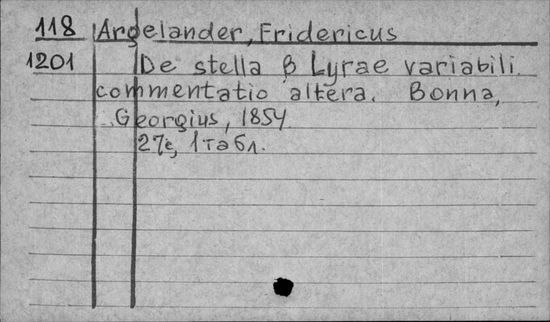 118 Argelander, Fridericus
1201 De stella β Lyrae variabili
commentatio altera. Bonna,
Georgius, 1854
27с, 1 табл.